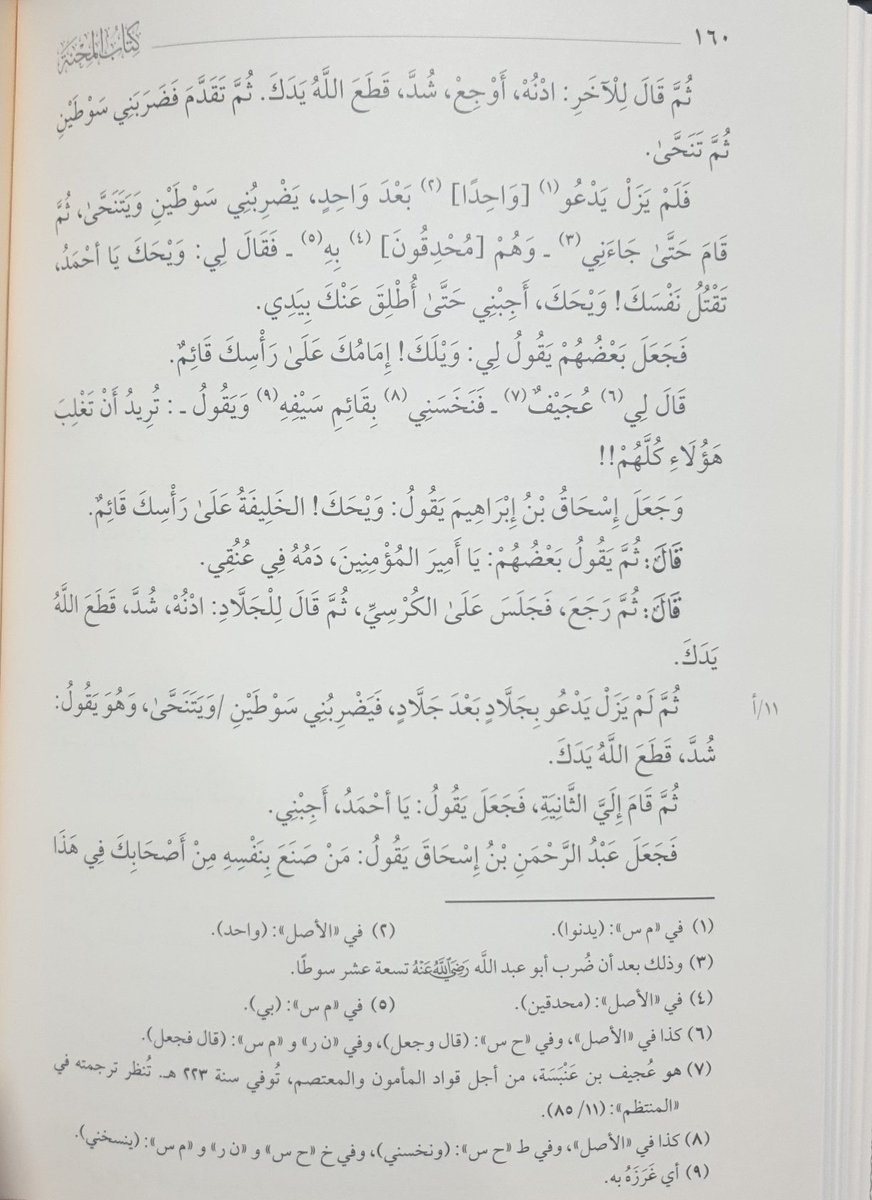 ١٦٠ كِتَابُ المِحْنَةِ
ثُمَّ قَالَ لِلْآخَرِ: ادْنُهْ، أَوْجِعْ، شُدَّ، قَطَعَ اللَّهُ يَدَكَ. ثُمَّ تَقَدَّمَ فَضَرَبَنِي سَوْطَيْنِ
ثُمَّ تَنَحَّىٰ.
فَلَمْ يَزَلْ يَدْعُو(١) [وَاحِدًا](٢) بَعْدَ وَاحِدٍ، يَضْرِبُنِي سَوْطَيْنِ وَيَتَنَحَّىٰ، ثُمَّ
قَامَ حَتَّىٰ جَاءَنِي(٣) ـ وَهُمْ [مُحْدِقُونَ](٤) بِهِ(٥) ـ فَقَالَ لِي: وَيْحَكَ يَا أحْمَدُ،
تَقْتُلُ نَفْسَكَ! وَيْحَكَ، أَجِبْنِي حَتَّىٰ أُطْلِقَ عَنْكَ بِيَدِي.
فَجَعَلَ بَعْضُهُمْ يَقُولُ لِي: وَيْلَكَ! إِمَامُكَ عَلَىٰ رَأْسِكَ قَائِمٌ.
قَالَ لِي(٦) عُجَيْفٌ(٧) ـ فَنَخَسَنِي(٨) بِقَائِمِ سَيْفِهِ(٩) وَيَقُولُ ـ: تُرِيدُ أَنْ تَغْلِبَ
هَؤُلَاءِ كُلَّهُمْ!!
وَجَعَلَ إِسْحَاقُ بْنُ إِبْرَاهِيمَ يَقُولُ: وَيْحَكَ! الخَلِيفَةُ عَلَىٰ رَأْسِكَ قَائِمٌ.
قَالَ: ثُمَّ يَقُولُ بَعْضُهُمْ: يَا أَمِيرَ المُؤْمِنِينَ، دَمُهُ فِي عُنُقِي.
قَالَ: ثُمَّ رَجَعَ، فَجَلَسَ عَلَىٰ الكُرْسِيِّ، ثُمَّ قَالَ لِلْجَلَّادِ: ادْنُهْ، شُدَّ، قَطَعَ اللَّهُ
يَدَكَ.
ثُمَّ لَمْ يَزَلْ يَدْعُو بِجَلَّادٍ بَعْدَ جَلَّادٍ، فَيَضْرِبُنِي سَوْطَيْنِ /وَيَتَنَحَّىٰ، وَهُوَ يَقُولُ: ١١/أ
شُدَّ، قَطَعَ اللَّهُ يَدَكَ.
ثُمَّ قَامَ إِلَيَّ الثَّانِيَةِ، فَجَعَلَ يَقُولُ: يَا أحْمَدُ، أَجِبْنِي.
فَجَعَلَ عَبْدُ الرَّحْمَنِ بْنُ إِسْحَاقَ يَقُولُ: مَنْ صَنَعَ بِنَفْسِهِ مِنْ أَصْحَابِكَ فِي هَذَا
(١) في «م س»: (يدنوا). (٢) في «الأصل»: (واحد).
(٣) وذلك بعد أن ضُرب أبو عبد اللَّه رَضِيَ اللَّهُ عَنْهُ تسعة عشر سوطًا.
(٤) في «الأصل»: (محدقين). (٥) في «م س»: (بي).
(٦) كذا في «الأصل»، وفي «ح س»: (قال وجعل)، وفي «ن ر» و «م س»: (قال فجعل).
(٧) هو عُجيف بن عَنْبَسَة، من أجل قواد المأمون والمعتصم، تُوفي سنة ٢٢٣ هـ. تُنظر ترجمته في
«المنتظم»: (١١/ ٨٥).
(٨) كذا في «الأصل»، وفي ط «ح س»: (ونخسني)، وفي خ «ح س» و «ن ر» و «م س»: (ينسخني).
(٩) أي غَرَزَهُ به.